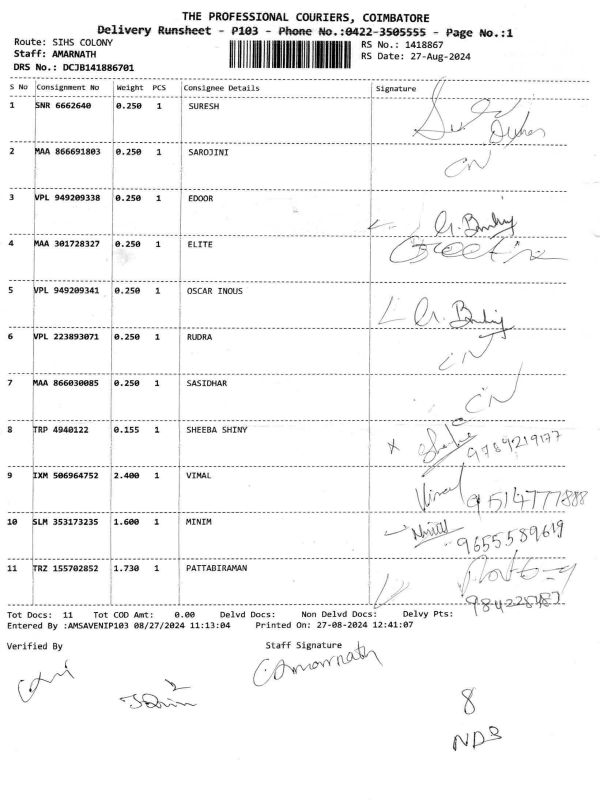 THE PROFESSIONAL COURIERS, COIMBATORE
Delivery Runsheet - P103 - Phone No.:0422-3505555 - Page No.:1
Route: SIHS COLONY
Staff: AMARNATH
DRS No.: DCJB141886701
RS No.: 1418867
RS Date: 27-Aug-2024
S No Consignment No Weight PCS Consignee Details Signature
1 SNR 6662640 0.250 1 SURESH
2 MAA 866691803 0.250 1 SAROJINI CN
3 VPL 949209338 0.250 1 EDOOR
4 MAA 301728327 0.250 1 ELITE
5 VPL 949209341 0.250 1 OSCAR INOUS
6 VPL 223893071 0.250 1 RUDRA CN
7 MAA 866030085 0.250 1 SASIDHAR CN
8 TRP 4940122 0.155 1 SHEEBA SHINY 9789219177
9 IXM 506964752 2.400 1 VIMAL Vimal 9514777888
10 SLM 353173235 1.600 1 MINIM 9655589619
11 TRZ 155702852 1.730 1 PATTABIRAMAN
Tot Docs: 11 Tot COD Amt: 0.00 Delvd Docs: Non Delvd Docs: Delvy Pts:
Entered By :AMSAVENIP103 08/27/2024 11:13:04 Printed On: 27-08-2024 12:41:07
Verified By Staff Signature
Amarnath
8
NDS